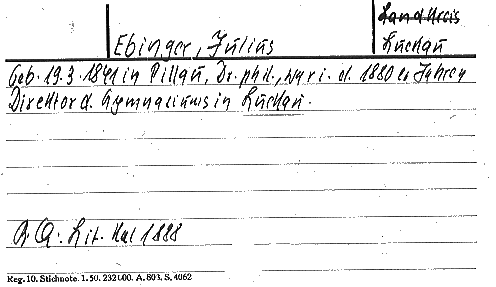 Landkreis
Ebinger, Julius Luckau
Geb. 19.3.1841 in Pillau, Dr. phil., war i. d. 1880er Jahren
Direktor d. Gymnasiums in Luckau.
Qu: Lit. Kal 1888
Reg. 10. Stichnote. 1. 50. 232000. A. 803. S. 4062